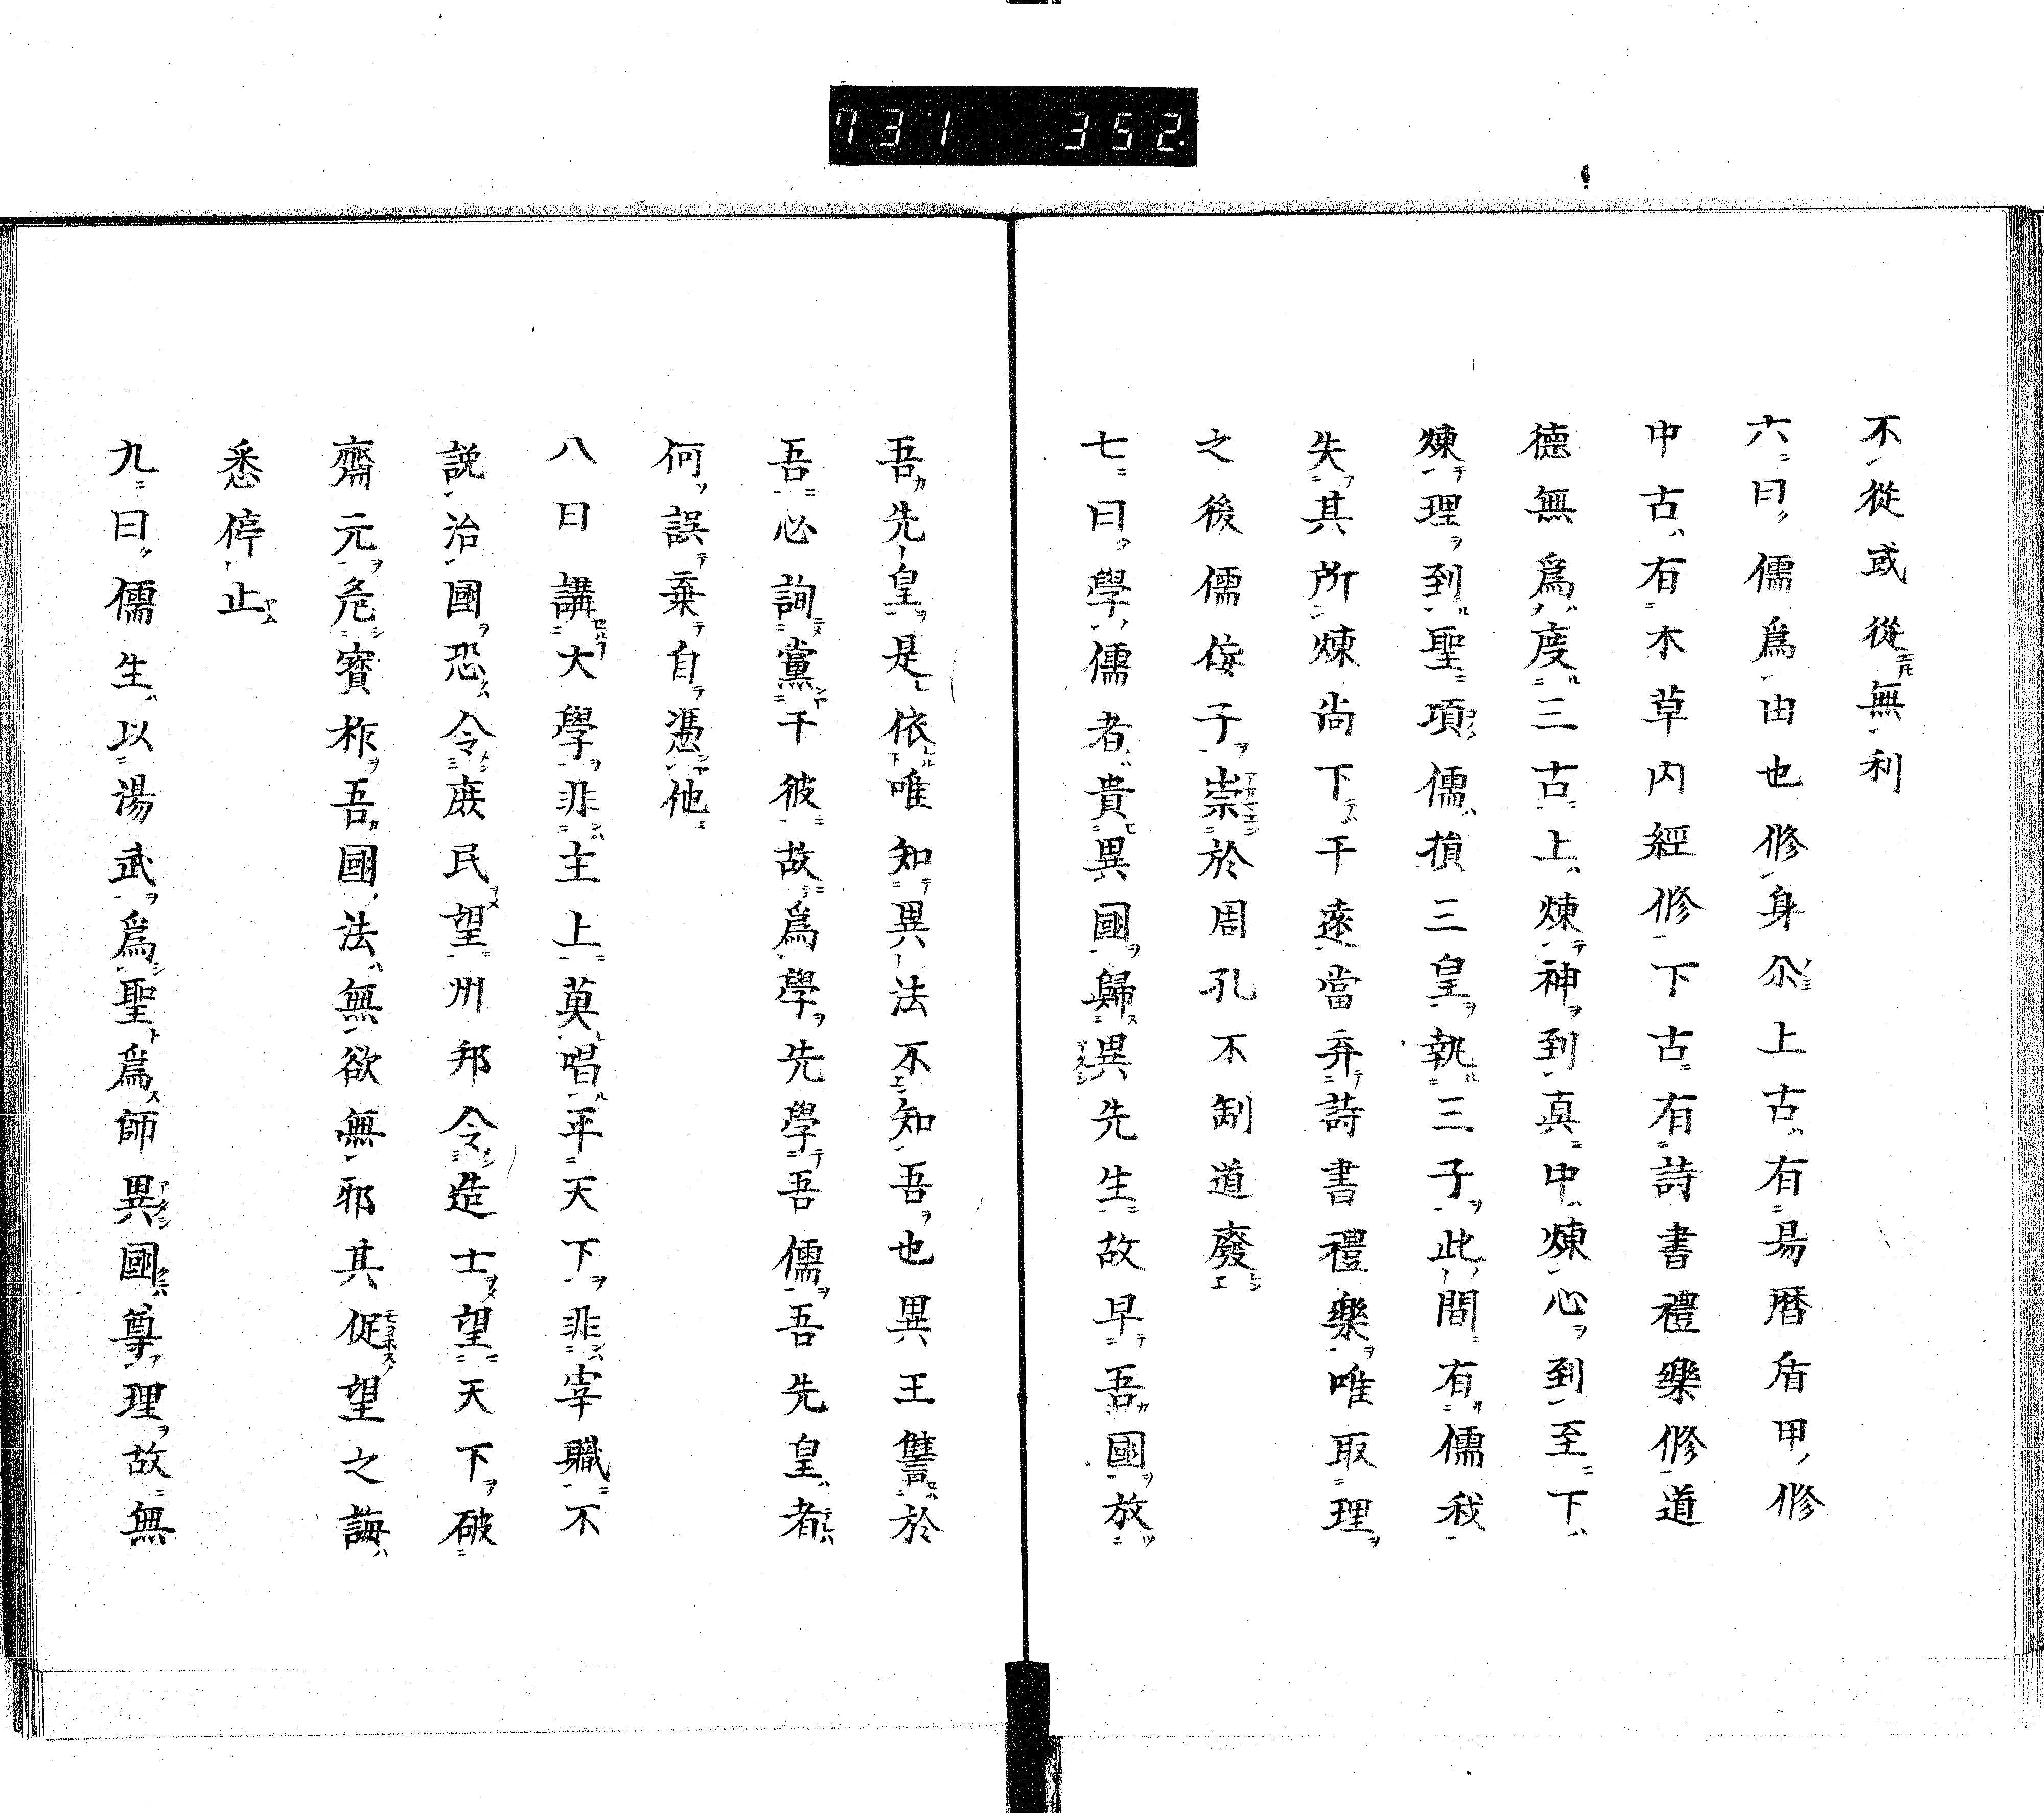 731 352
不從或從無利
六曰儒爲由也修身尒上古有易暦盾甲修
中古有木草内經修下古有詩書禮樂修道
德無爲度三古上煉神到真中煉心到至下
煉理到聖項儒損三皇執三子此間有儒我
失其所煉尚下干遠當弃詩書禮樂唯取理
之後儒侫子崇於周孔不制道廢
七曰學儒者貴異國歸異先生故早吾國放
吾先皇是依唯知異法不知吾也異王讐於
吾必詢黨干彼故爲學先學吾儒吾先皇者
何誤棄自憑他
八曰講大學非主上莫唱平天下非宰職不
説治國恐令庶民望州邦令造士望天下破
齋元危寳祚吾國法無欲無邪其促望之誨
悉停止
九曰儒生以湯武爲聖爲師異國尊理故無